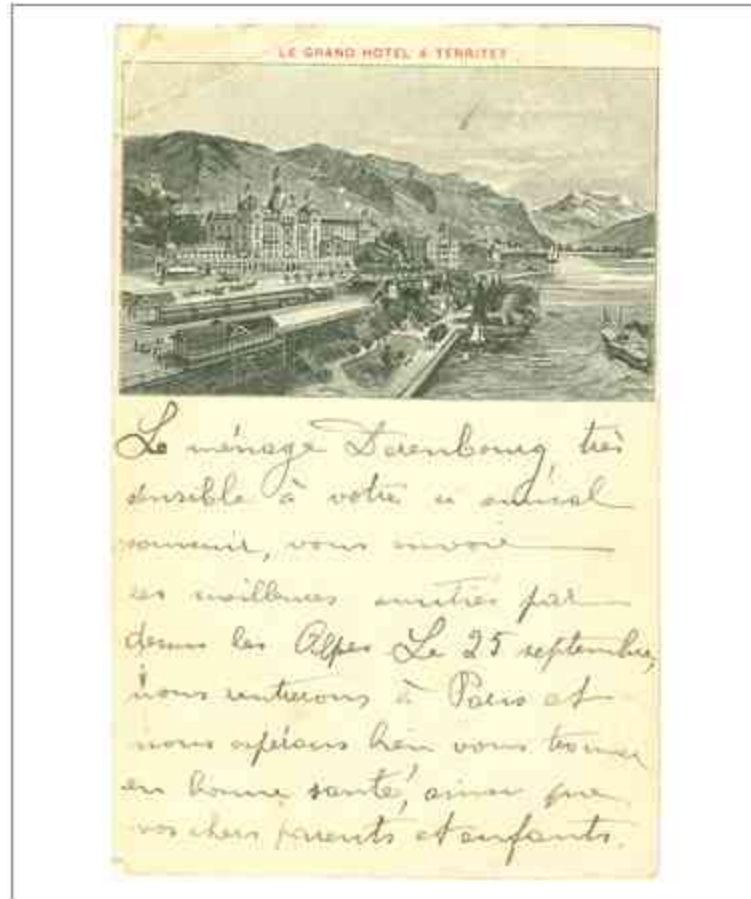 LE GRAND HOTEL à TERRITET
Le ménage Derenbourg, très
sensible à votre si amical
souvenir, vous envoie
ses meilleures amitiés par
dessus les Alpes Le 25 septembre,
nous rentrerons à Paris et
nous espérons bien vous trouver
en bonne santé, ainsi que
vos chers parents et enfants.